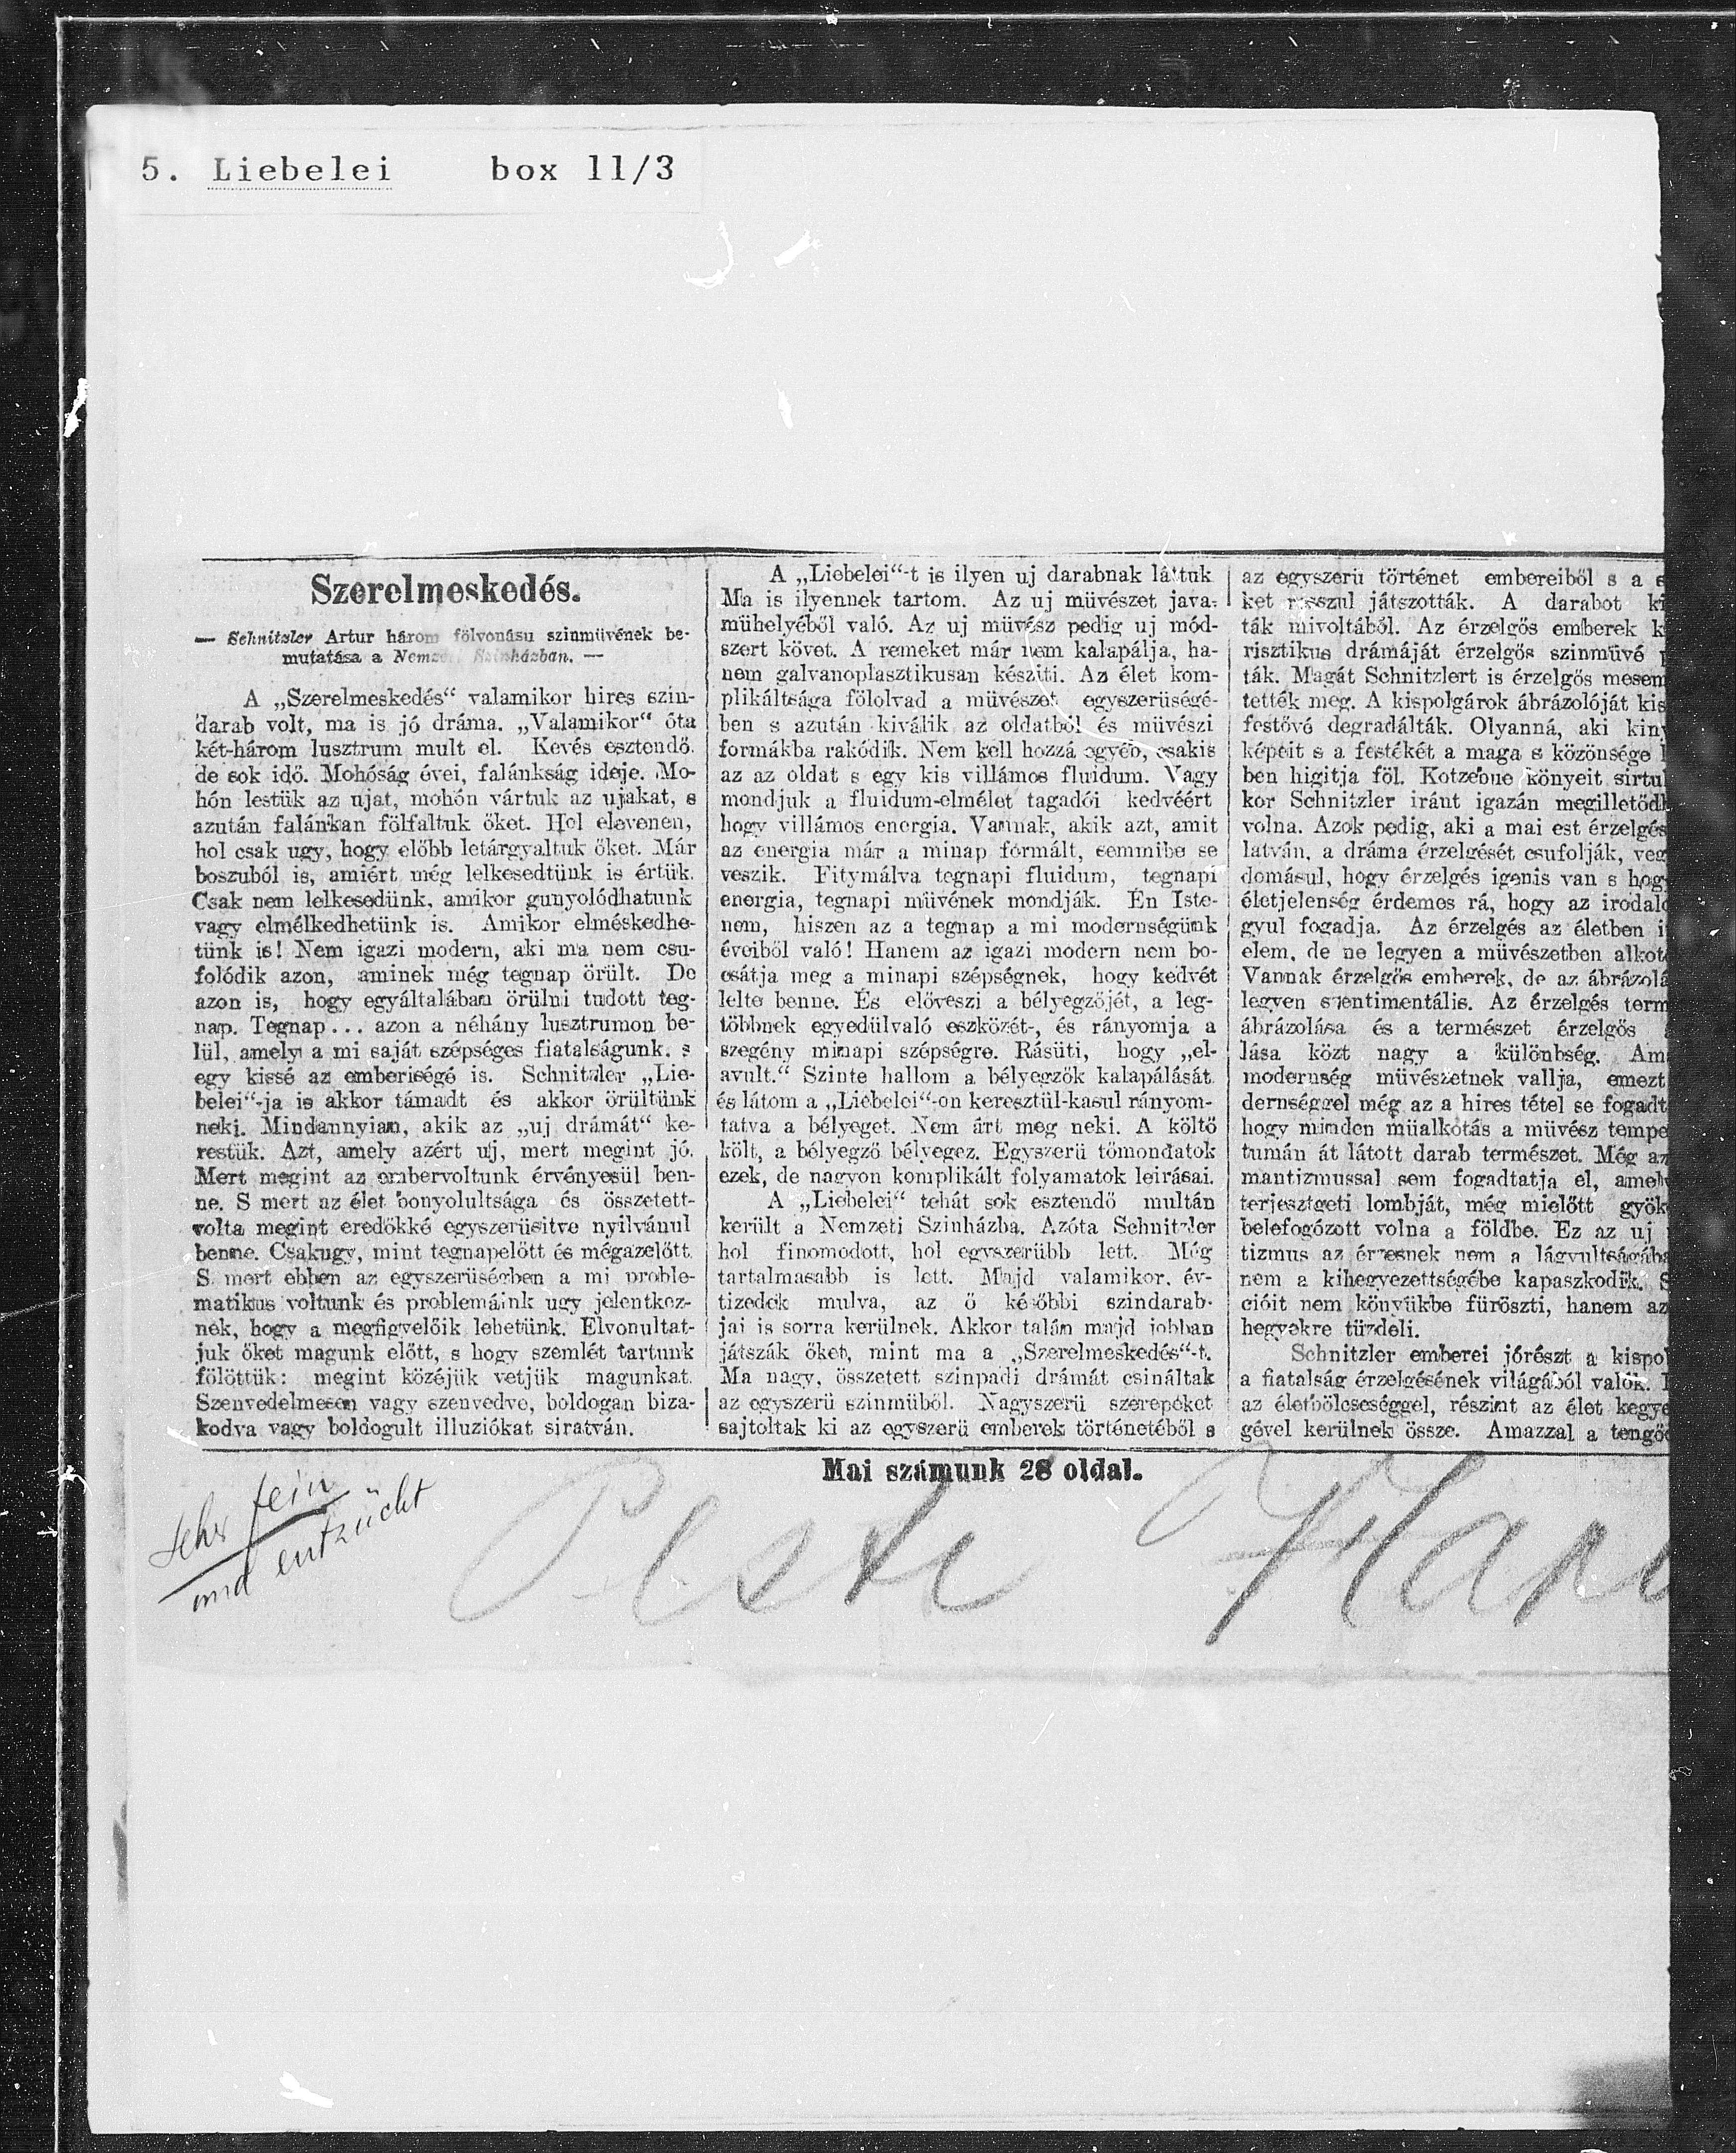 5. Liebelei box 11/3
Szerelmeskedés.
— Schnitzler Artur három fölvonásu szinmüvének be-
mutatása a Nemzeti Szinházban. —
A „Szerelmeskedés“ valamikor hires szin-
darab volt, ma is jó dráma. „Valamikor“ óta
két-három lusztrum mult el. Kevés esztendő.
de sok idő. Mohóság évei, falánkság ideje. Mo-
hón lestük az ujat, mohón vártuk az ujakat, s
azután falánkan fölfaltuk őket. Hol elevenen,
hol csak ugy, hogy előbb letárgyaltuk őket. Már
boszuból is, amiért még lelkesedtünk is értük.
Csak nem lelkesedünk, amikor gunyolódhatunk
vagy elmélkedhetünk is. Amikor elméskedhe-
tünk is! Nem igazi modern, aki ma nem csu-
folódik azon, aminek még tegnap örült. De
azon is, hogy egyáltalában örülni tudott teg-
nap. Tegnap... azon a néhány lusztrumon be-
lül, amely a mi saját szépséges fiatalságunk, s
egy kissé az emberiségé is. Schnitzler „Lie-
belei“-ja is akkor támadt és akkor örültünk
neki. Mindannyian, akik az „uj drámát“ ke-
restük. Azt, amely azért uj, mert megint jó.
Mert megint az embervoltunk érvényesül ben-
ne. S mert az élet bonyolultsága és összetett-
volta megint eredőkké egyszerüsitve nyilvánul
benne. Csakugy, mint tegnapelőtt és mégazelőtt.
S mert ebben az egyszerüségben a mi proble-
matikus voltunk és problemáink ugy jelentkez-
nek, hogy a megfigyelőik lehetünk. Elvonultat-
juk őket magunk előtt, s hogy szemlét tartunk
fölöttük: megint közéjük vetjük magunkat.
Szenvedelmesen vagy szenvedve, boldogan biza-
kodva vagy boldogult illuziókat siratván.
A „Liebelei“-t is ilyen uj darabnak láttuk
Ma is ilyennek tartom. Az uj müvészet java-
mühelyéből való. Az uj müvész pedig uj mód-
szert követ. A remeket már nem kalapálja, ha-
nem galvanoplasztikusan késziti. Az élet kom-
plikáltsága fölolvad a müvészet egyszerüségé-
ben s azután kiválik az oldatból és müvészi
formákba rakódik. Nem kell hozzá egyéb, csakis
az az oldat s egy kis villámos fluidum. Vagy
mondjuk a fluidum-elmélet tagadói kedvéért
hogy villámos energia. Vannak, akik azt, amit
az energia már a minap formált, semmibe se
veszik. Fitymálva tegnapi fluidum, tegnapi
energia, tegnapi müvének mondják. Én Iste-
nem, hiszen az a tegnap a mi modernségünk
éveiből való! Hanem az igazi modern nem bo-
csátja meg a minapi szépségnek, hogy kedvét
lelte benne. És előveszi a bélyegzőjét, a leg-
többnek egyedülvaló eszközét-, és rányomja a
szegény minapi szépségre. Rásüti, hogy „el-
avult.“ Szinte hallom a bélyegzők kalapálását
és látom a „Liebelei“-on keresztül-kasul rányom-
tatva a bélyeget. Nem árt meg neki. A költő
költ, a bélyegző bélyegez. Egyszerü tőmondatok
ezek, de nagyon komplikált folyamatok leirásai.
A „Liebelei“ tehát sok esztendő multán
került a Nemzeti Szinházba. Azóta Schnitzler
hol finomodott, hol egyszerübb lett. Még
tartalmasabb is lett. Majd valamikor, év-
tizedek mulva, az ő későbbi szindarab-
jai is sorra kerülnek. Akkor talán majd jobban
játszák őket, mint ma a „Szerelmeskedés“-t.
Ma nagy, összetett szinpadi drámát csináltak
az egyszerü szinmüből. Nagyszerü szerepeket
sajtoltak ki az egyszerü emberek történetéből s
az egyszerü történet embereiből s a s
ket rosszul játszották. A darabot ki
ták mivoltából. Az érzelgős emberek k
risztikus drámáját érzelgős szinmüvé
ták. Magát Schnitzlert is érzelgős mesem
tették meg. A kispolgárok ábrázolóját kis
festővé degradálták. Olyanná, aki kin
képeit s a festékét a maga s közönsége
ben higitja föl. Kotzebue könyeit sirtu
kor Schnitzler iránt igazán megilletőd
volna. Azok pedig, aki a mai est érzelgés
latván, a dráma érzelgését csufolják, veg
domásul, hogy érzelgés igenis van s hog
életjelenség érdemes rá, hogy az irodal
gyul fogadja. Az érzelgés az életben i
elem, de ne legyen a müvészetben alkot
Vannak érzelgős emberek, de az ábrázolá
legyen szentimentális. Az érzelgés term
ábrázolása és a természet érzelgős
lása közt nagy a különbség. Am
modernség müvészetnek vallja, emezt
dernséggel még az a hires tétel se fogadt
hogy minden müalkotás a müvész tempe
tumán át látott darab természet. Még az
mantizmussal sem fogadtatja el, amely
terjesztgeti lombját, még mielőtt gyök
belefogózott volna a földbe. Ez az uj
tizmus az érzésnek nem a lágyultságába
nem a kihegyezettségébe kapaszkodik. S
cióit nem könyükbe füröszti, hanem az
hegyekre tüzdeli.
Schnitzler emberei jórészt a kispol
a fiatalság érzelgésének világából valók.
az életbölcseséggel, részint az élet kegye
gével kerülnek össze. Amazzal a tengő
Mai számunk 28 oldal.
sehr fein
und entzückt
Pesti Hirl